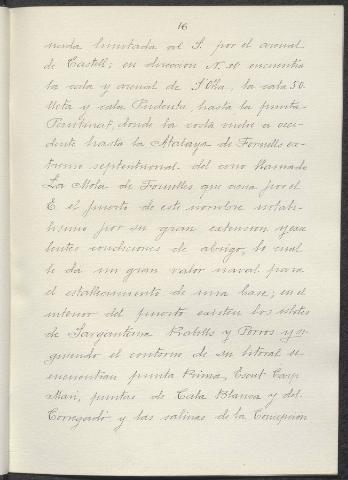 16
nada limitada al S. por el arenal
de Castell; en direccion N. se encuentra
la cala y arenal de S'Olla, la cala So-
lleta y cala Pudenta, hasta la punta
Pentinat, donde la costa vuelve a occi-
dente hasta la Atalaya de Fornells ex-
tremo septentrional del cono llamado
La Mola de Fornells, que cierra por el
E. el puerto de este nombre notabi-
lisimo por su gran extension y exce-
lentes condiciones de abrigo, lo cual
le da un gran valor naval para
el establecimiento de una base; en el
interior del puerto existen los islotes
de Sargantana Rabells y Porros y si-
guiendo el contorno de su litoral se
encuentran punta Prima, Escul
Mari, puntas de Cala Blanca y del
Corregado y las salinas de la Concepcion